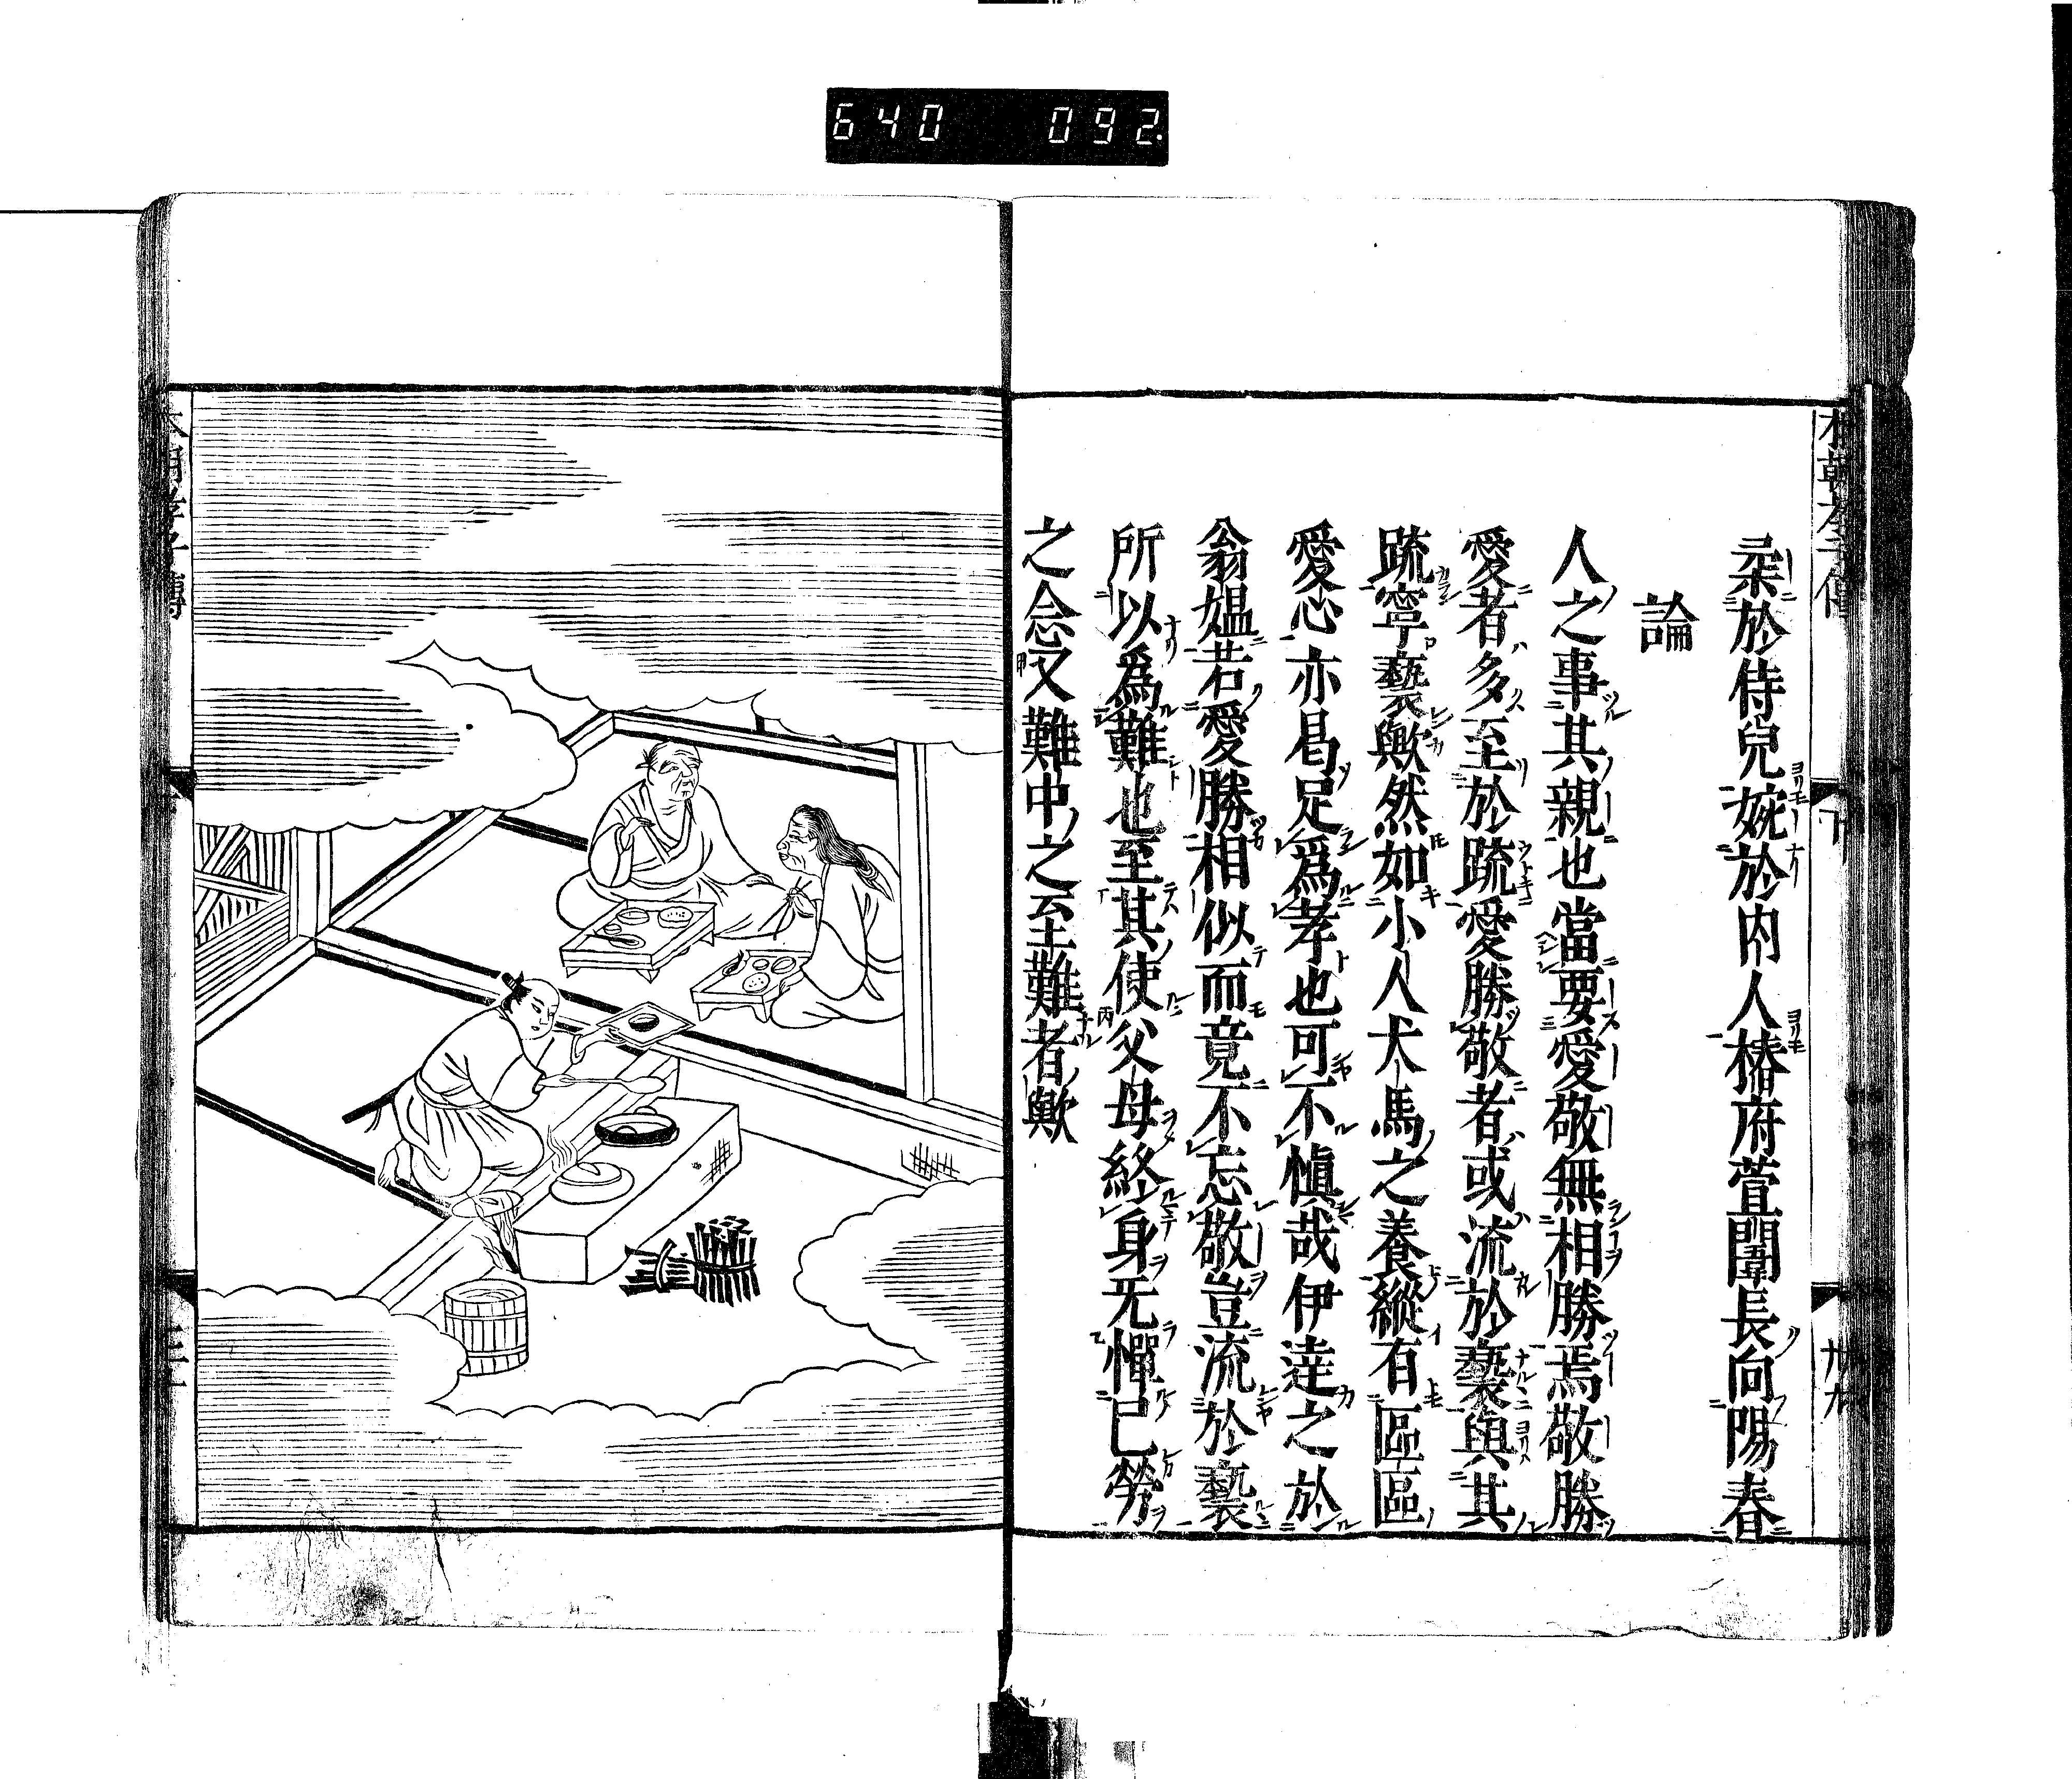 640 092
本朝孝子傳
下
十九
柔於侍兒婉於内人椿府萱闈長向陽春
論
人之事其親也當要愛敬無相勝焉敬勝
愛者多至於疏愛勝敬者或流於褻與其
疏寧褻歟然如小人犬馬之養縱有區區
愛心亦曷足爲孝也可不愼哉伊達之於
翁媼若愛勝相似而竟不忘敬豈流於褻
所以爲難也至其使父母終身无憚已勞
之念又難中之至難者歟
本朝孝子傳